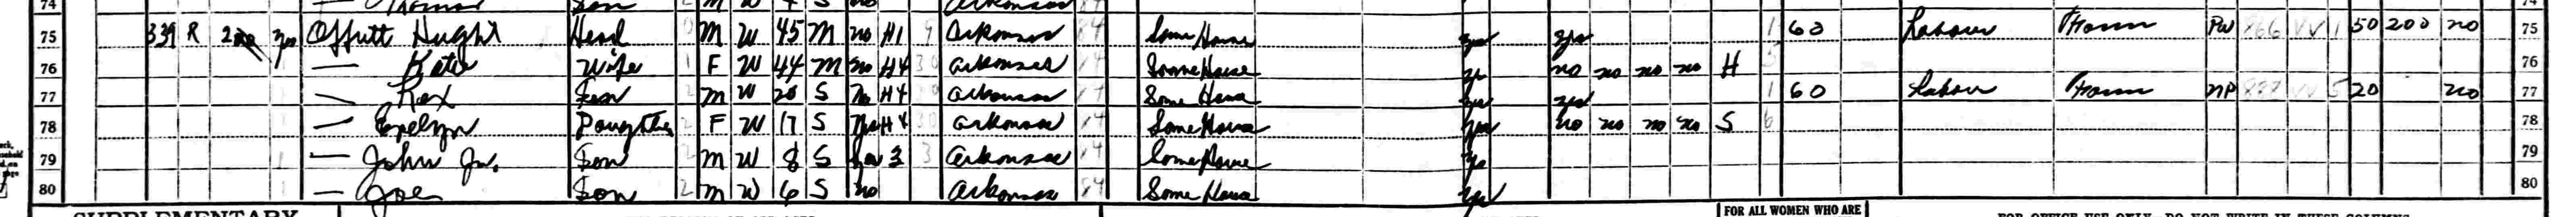 74 Thomas Son 2 M W 4 S no Arkansas 84 74
75 339 R yes Offutt Hught Head 0 M W 45 M no H1 9 Arkansas 84 Same House yes yes 1 60 Labour Farm PW 866 VV 1 50 200 no 75
76 — Katie Wife 1 F W 44 M no H4 30 Arkansas 84 Same House yes no no no no H 5 76
77 — Rex Son 2 M W 20 S No H4 Arkansas 84 Same House yes yes 1 60 Labour Farm NP VV 5 20 no 77
78 — Evelyn Daughter 2 F W 17 S yes H4 30 Arkansas 84 Same House yes no no no no S 6 78
79 — John Jr. Son 2 M W 8 S yes 3 3 Arkansas 84 Same House yes 79
80 — Joe Son 2 M W 6 S no Arkansas 84 Same House yes 80
SUPPLEMENTARY FOR ALL WOMEN WHO ARE FOR OFFICE USE ONLY—DO NOT WRITE IN THESE COLUMNS